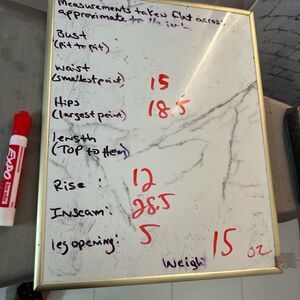 Measurements taken flat across
approximate to the inch
Bust
(Pit to pit)
Waist
(smallest point) 15
Hips 18.5
(largest point)
length
(TOP to Hem)
Rise: 12
Inseam: 28.5
leg opening: 5
Weigh 15 oz
EXPO